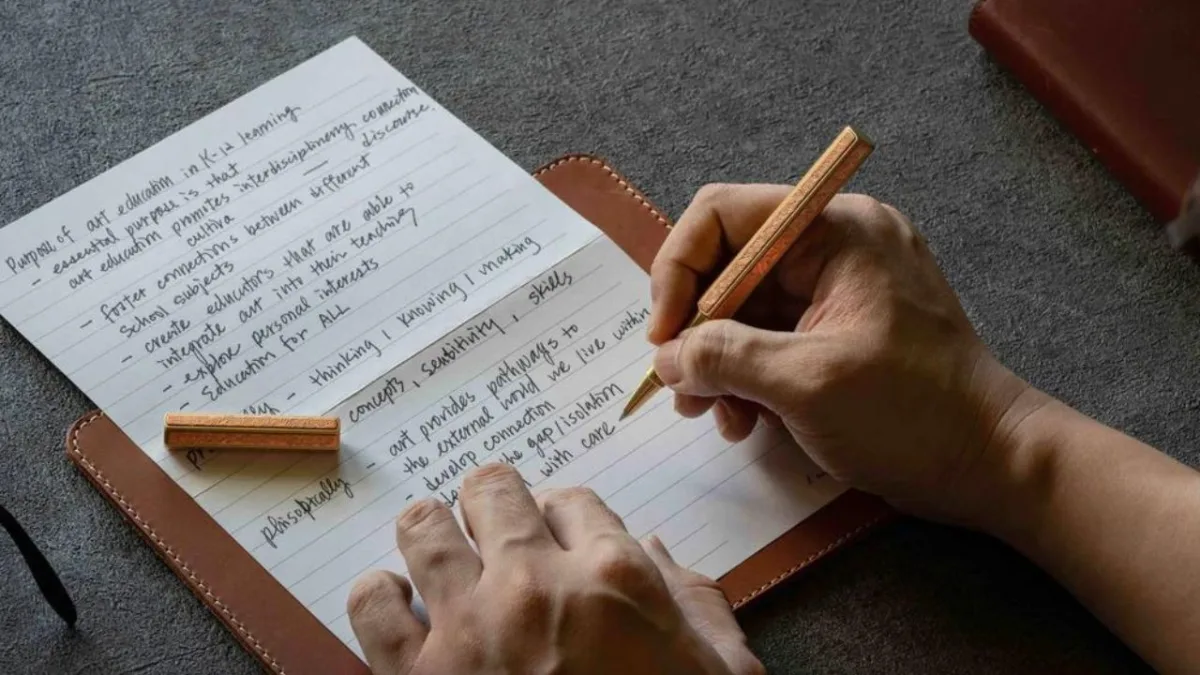 Purpose of art education in K-12 learning
- essential purpose is that
art education promotes interdisciplinary connection
cultiva discourse.
- foster connections between different
school subjects
- create educators that are able to
integrate art into their teaching
- explore personal interests
- Education for ALL
- thinking / knowing / making
concepts, sensitivity, skills
philosophically
- art provides pathways to
the external world we live within
- develop connection
the gap/isolation
with care